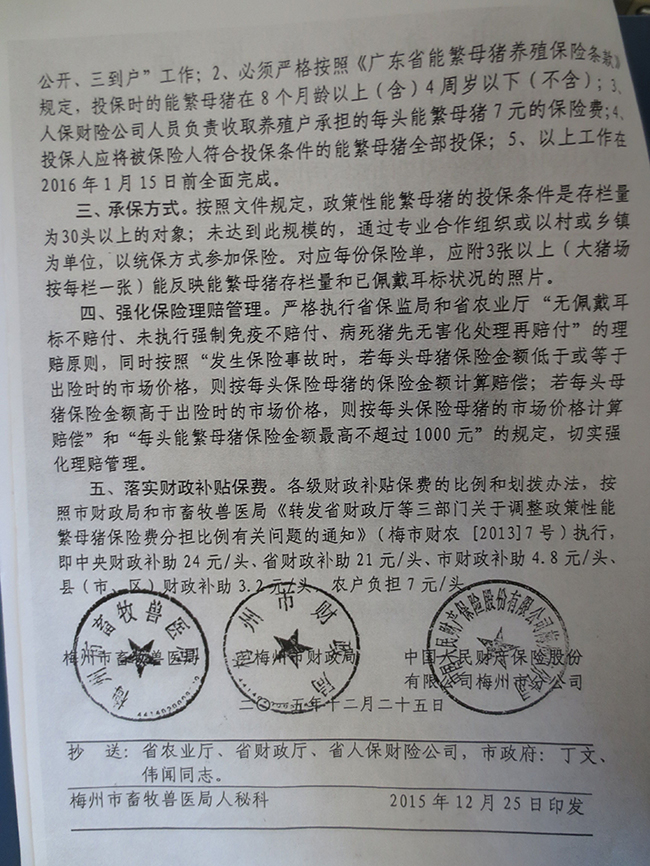 公开、三到户”工作；2、必须严格按照《广东省能繁母猪养殖保险条款》
规定，投保时的能繁母猪在8个月龄以上（含）4周岁以下（不含）；3、
人保财险公司人员负责收取养殖户承担的每头能繁母猪7元的保险费；4、
投保人应将被保险人符合投保条件的能繁母猪全部投保；5、以上工作在
2016年1月15日前全面完成。
三、承保方式。按照文件规定，政策性能繁母猪的投保条件是存栏量
为30头以上的对象；未达到此规模的，通过专业合作组织或以村或乡镇
为单位，以统保方式参加保险。对应每份保险单，应附3张以上（大猪场
按每栏一张）能反映能繁母猪存栏量和已佩戴耳标状况的照片。
四、强化保险理赔管理。严格执行省保监局和省农业厅“无佩戴耳
标不赔付、未执行强制免疫不赔付、病死猪先无害化处理再赔付”的理
赔原则，同时按照“发生保险事故时，若每头母猪保险金额低于或等于
出险时的市场价格，则按每头保险母猪的保险金额计算赔偿；若每头母
猪保险金额高于出险时的市场价格，则按每头保险母猪的市场价格计算
赔偿”和“每头能繁母猪保险金额最高不超过1000元”的规定，切实强
化理赔管理。
五、落实财政补贴保费。各级财政补贴保费的比例和划拨办法，按
照市财政局和市畜牧兽医局《转发省财政厅等三部门关于调整政策性能
繁母猪保险费分担比例有关问题的通知》（梅市财农［2013］7号）执行，
即中央财政补助24元/头、省财政补助21元/头、市财政补助4.8元/头、
县（市、区）财政补助3.2元/头，农户负担7元/头
梅州市畜牧兽医局 梅州市财政局 中国人民财产保险股份
有限公司梅州市分公司
二〇一五年十二月二十五日
抄 送：省农业厅、省财政厅、省人保财险公司，市政府：丁文、
伟闻同志。
梅州市畜牧兽医局人秘科 2015年12月25日印发